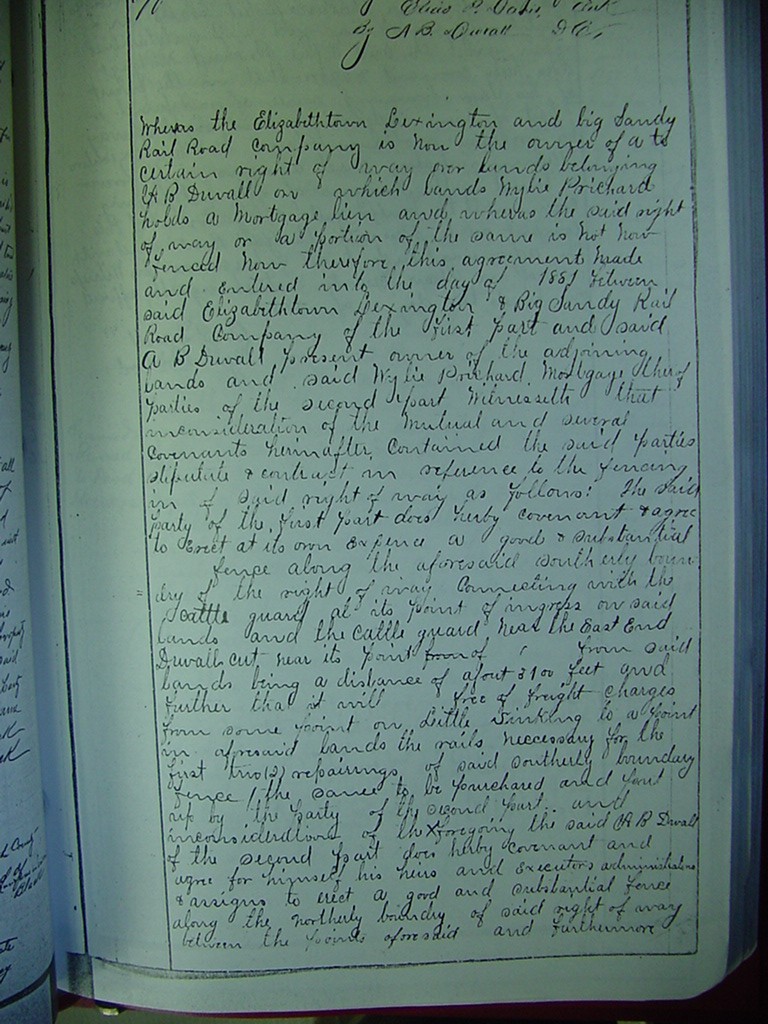 By A B Duvall D C
Wheras the Elizabethtown Lexington and big Sandy
Rail Road Company is now the owner of a to
certain right of way over lands belonging
A B Duvall on which lands Wylie Prichard
holds a Mortgage lien and wheras the said right
of way or a portion of the same is not now
fenced Now therefore this agreement made
and entered into the day of 1881 between
said Elizabethtown Lexington & Big Sandy Rail
Road Company of the first part and said
A B Duvall present owner of the adjoining
lands and said Wylie Prichard Mortgage therof
parties of the second part Witnesseth that
inconsideration of the Mutual and several
covenants herinafter, contained the said parties
stipulate & contract in reference to the fencing
in of said right of way as follows: The said
party of the first part does herby covenant & agree
to Erect at its own expence a good & substantial
fence along the aforesaid southerly boun
dry of the right of way Connecting with the
cattle guard at its point of ingress on said
lands and the cattle guard near the East End
Duvall cut near its point from of from said
lands being a distance of about 3100 feet and
further tha it will free of freight charges
from some point on Little Sinking to a point
in aforesaid lands the rails neccessary for the
first two (2) repairings of said southerly boundary
fence, the same to be purchared and put
up by the party of the second part and
inconsiderdtion of the foregoing the said A B Duvall
of the second part does herby covenant and
agree for himself his heirs and Executors administrators
& assigns to erect a good and substantial fence
along the northerly boundry of said right of way
between the points aforesaid and furthermore